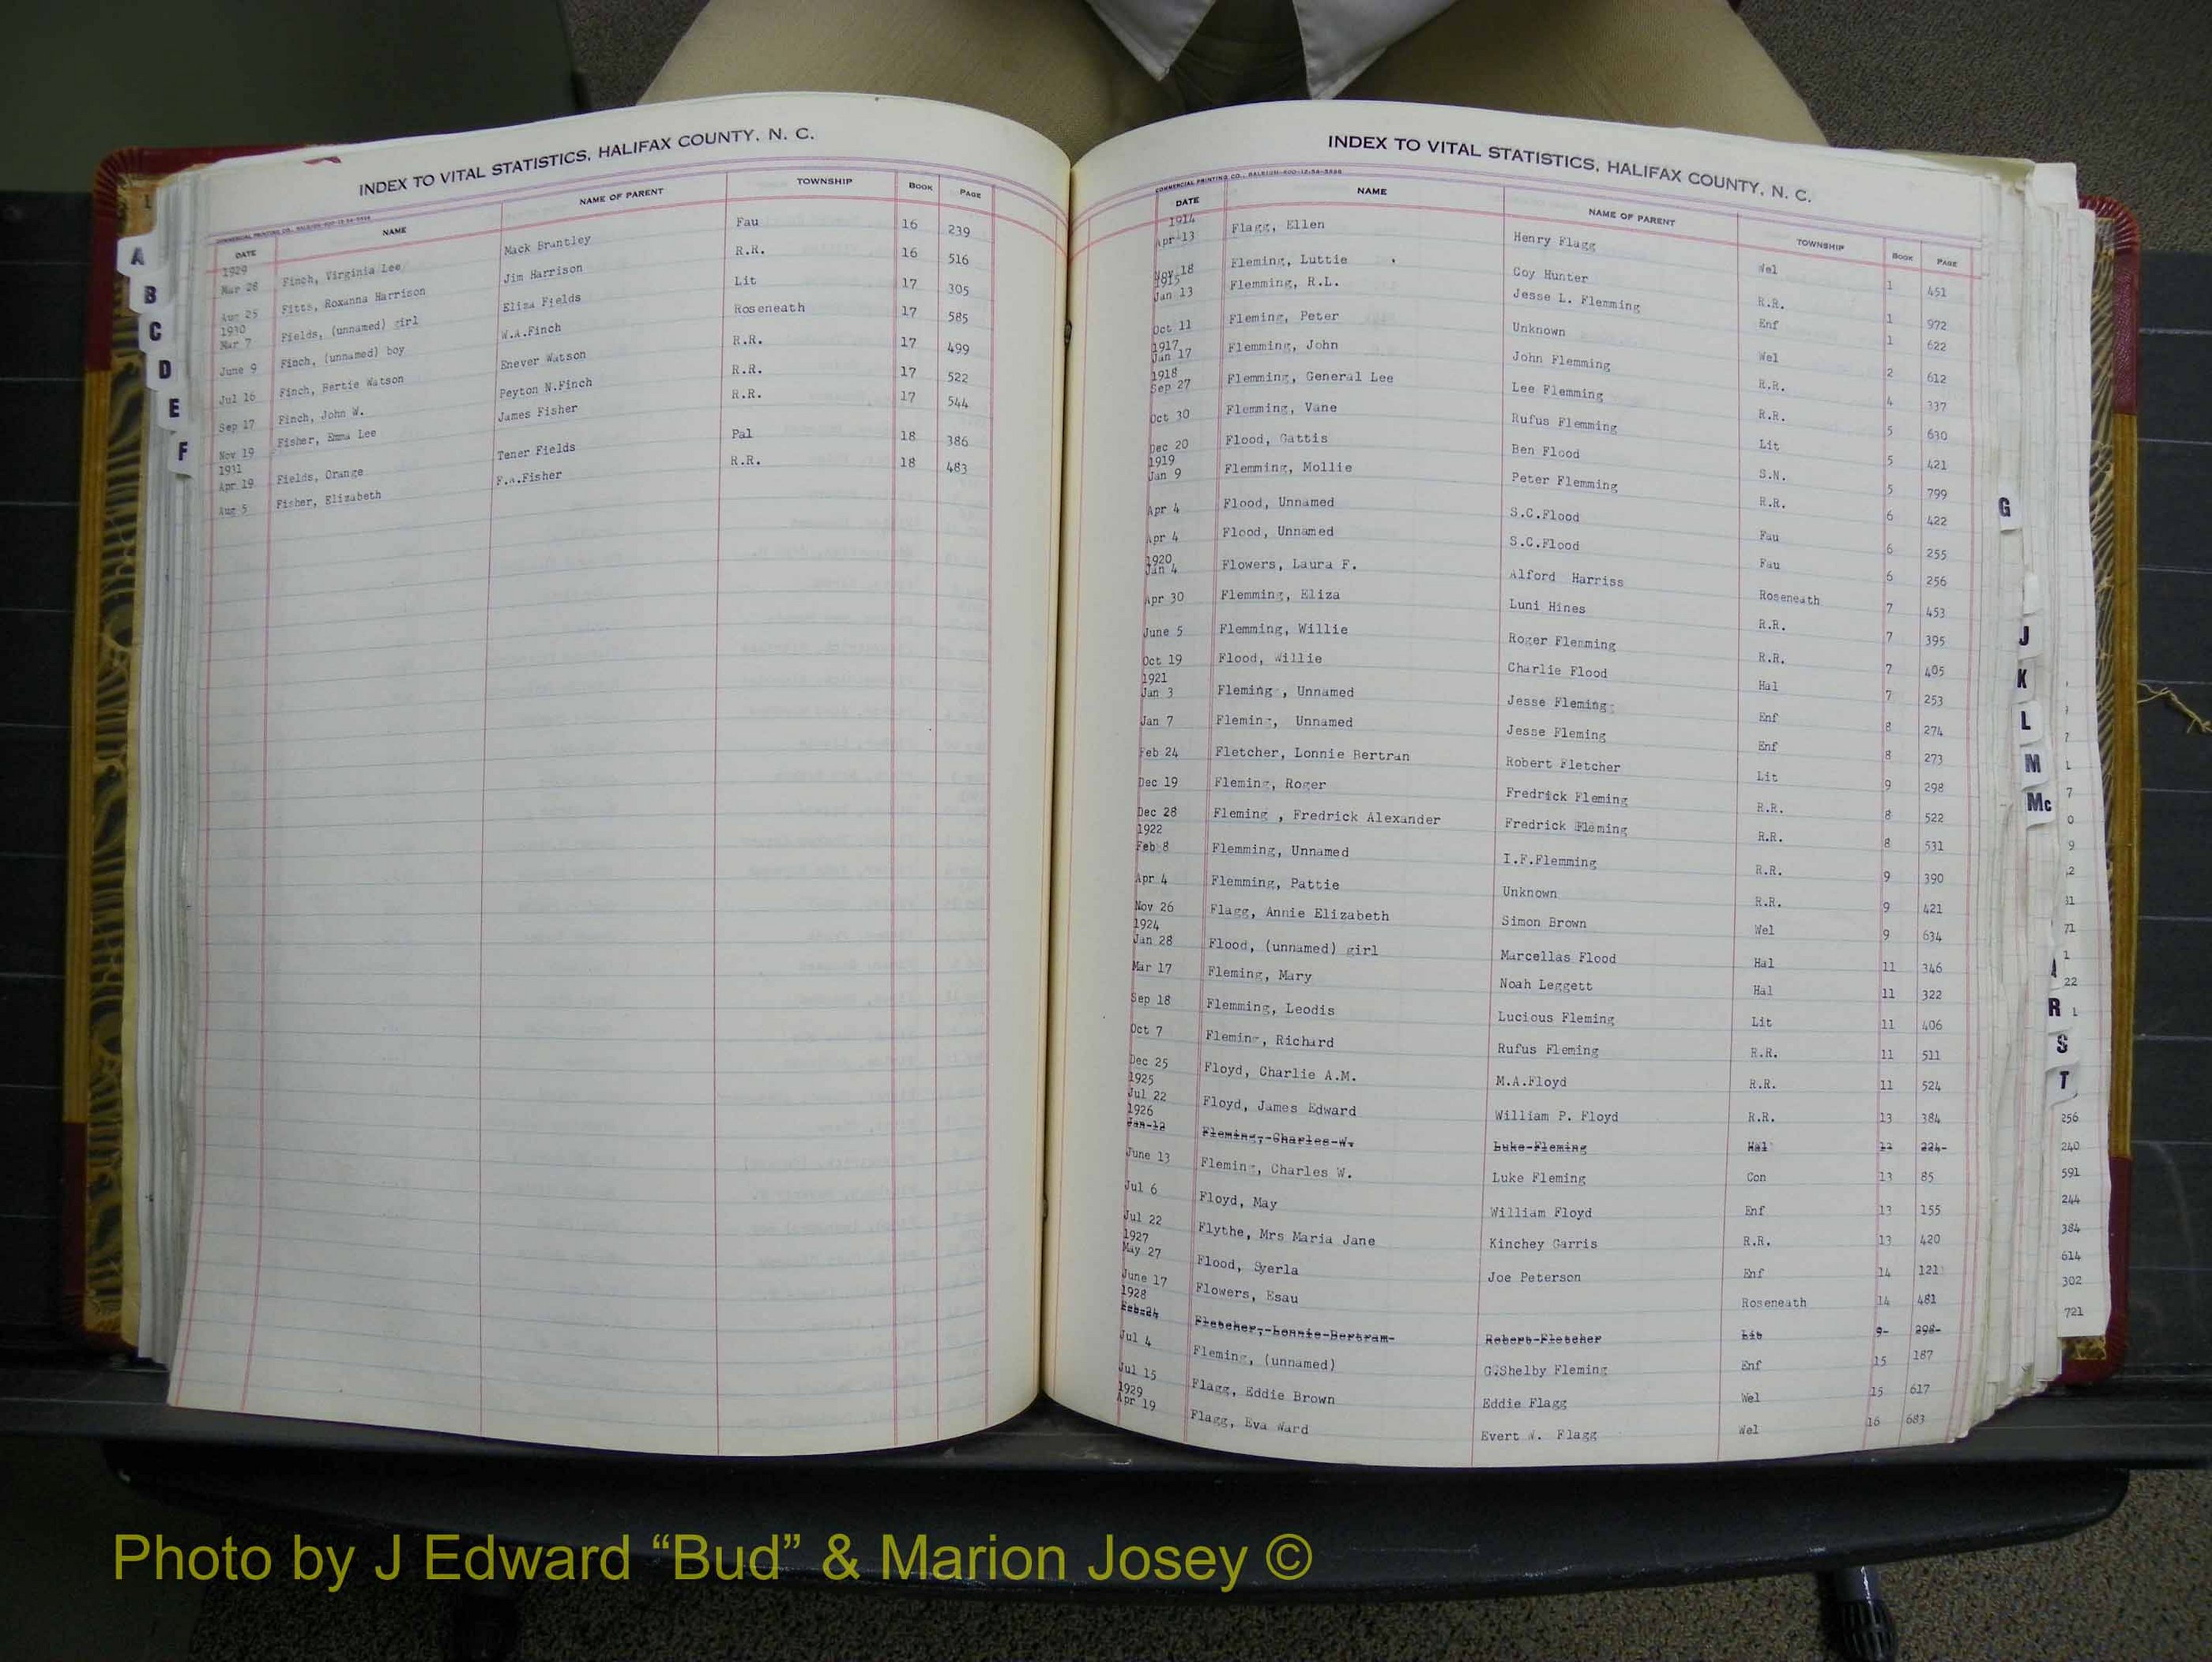 INDEX TO VITAL STATISTICS, HALIFAX COUNTY, N. C.
COMMERCIAL PRINTING CO., RALEIGH
DATE NAME NAME OF PARENT TOWNSHIP BOOK PAGE
1929
Mar 28 Finch, Virginia Lee Mack Brantley Fau 16 239
Aug 25 Fitts, Roxanna Harrison Jim Harrison R.R. 16 516
1930
Mar 7 Fields, (unnamed) girl Eliza Fields Lit 17 305
June 9 Finch, (unnamed) boy W.A.Finch Roseneath 17 585
Jul 16 Finch, Bertie Watson Enever Watson R.R. 17 499
Sep 17 Finch, John W. Peyton N.Finch R.R. 17 522
Nov 19 Fisher, Emma Lee James Fisher R.R. 17 544
1931
Apr 19 Fields, Orange Tener Fields Pal 18 386
Aug 5 Fisher, Elizabeth F.A.Fisher R.R. 18 483
A
B
C
D
E
F
INDEX TO VITAL STATISTICS, HALIFAX COUNTY, N. C.
COMMERCIAL PRINTING CO., RALEIGH
DATE NAME NAME OF PARENT TOWNSHIP BOOK PAGE
1914
Apr 13 Flagg, Ellen Henry Flagg Wel 1 451
Nov 18 Fleming, Luttie Coy Hunter R.R. 1 972
1915
Jan 13 Flemming, R.L. Jesse L. Flemming Enf 1 622
Oct 11 Fleming, Peter Unknown Wel 2 612
1917
Jan 17 Flemming, John John Flemming R.R. 4 337
1918
Sep 27 Flemming, General Lee Lee Flemming R.R. 5 630
Oct 30 Flemming, Vane Rufus Flemming Lit 5 421
Dec 20 Flood, Gattis Ben Flood S.N. 5 799
1919
Jan 9 Flemming, Mollie Peter Flemming R.R. 6 422
Apr 4 Flood, Unnamed S.C.Flood Fau 6 255
Apr 4 Flood, Unnamed S.C.Flood Fau 6 256
1920
Jan 4 Flowers, Laura F. Alford Harriss Roseneath 7 453
Apr 30 Flemming, Eliza Luni Hines R.R. 7 395
June 5 Flemming, Willie Roger Flemming R.R. 7 405
Oct 19 Flood, Willie Charlie Flood Hal 7 253
1921
Jan 3 Fleming , Unnamed Jesse Fleming Enf 8 274
Jan 7 Fleming, Unnamed Jesse Fleming Enf 8 273
Feb 24 Fletcher, Lonnie Bertran Robert Fletcher Lit 9 298
Dec 19 Fleming, Roger Fredrick Fleming R.R. 8 522
Dec 28 Fleming , Fredrick Alexander Fredrick Fleming R.R. 8 531
1922
Feb 8 Flemming, Unnamed I.F.Flemming R.R. 9 390
Apr 4 Flemming, Pattie Unknown R.R. 9 421
Nov 26 Flagg, Annie Elizabeth Simon Brown Wel 9 634
1924
Jan 28 Flood, (unnamed) girl Marcellas Flood Hal 11 346
Mar 17 Fleming, Mary Noah Leggett Hal 11 322
Sep 18 Flemming, Leodis Lucious Fleming Lit 11 406
Oct 7 Fleming, Richard Rufus Fleming R.R. 11 511
Dec 25 Floyd, Charlie A.M. M.A.Floyd R.R. 11 524
1925
Jul 22 Floyd, James Edward William P. Floyd R.R. 13 384
1926
Jan-12 Fleming,-Charles-W. Luke-Fleming Hal 224-
June 13 Fleming, Charles W. Luke Fleming Con 13 85
Jul 6 Floyd, May William Floyd Enf 13 155
Jul 22 Flythe, Mrs Maria Jane Kinchey Garris R.R. 13 420
1927
May 27 Flood, Syerla Joe Peterson Enf 14 121
June 17 Flowers, Esau Roseneath 14 481
1928
Feb-24 Fletcher,-Lonnie-Bertram- Robert-Fletcher Lit 9- 298-
Jul 4 Fleming, (unnamed) G.Shelby Fleming Enf 15 187
Jul 15 Flagg, Eddie Brown Eddie Flagg Wel 15 617
1929
Apr 19 Flagg, Eva Ward Evert W. Flagg Wel 16 683
G
J
K
L
M
Mc
R
S
T
256
240
591
244
384
614
302
721
Photo by J Edward “Bud” & Marion Josey ©